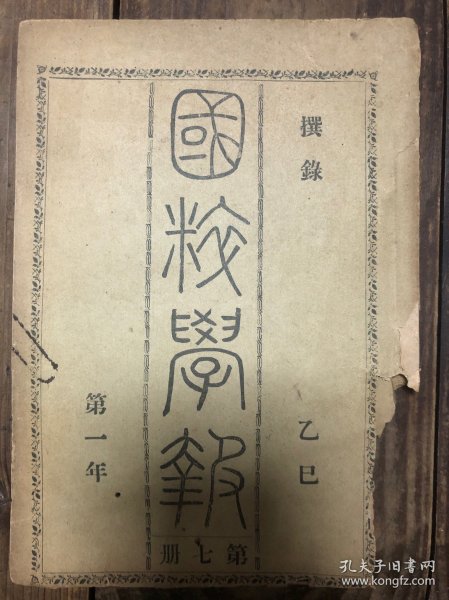 撰錄
乙巳
國粹學報
第七册
第一年
孔夫子旧书网
www.kongfz.com